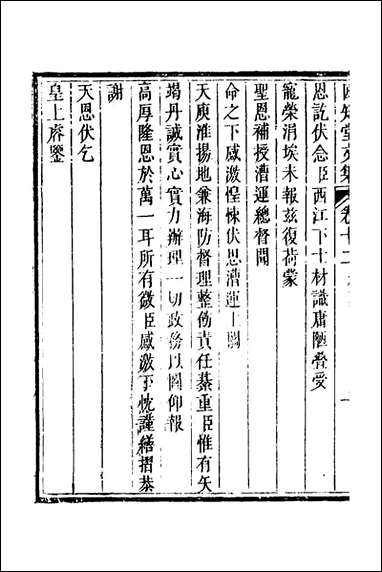 困知堂文集 卷十二
恩訖伏念臣西江下士材識庸陋叠受
寵榮涓埃未報茲復荷蒙
聖恩補授漕運總督聞
命之下感激惶悚伏思漕運上關
天庾淮揚地兼海防督理整飭責任綦重臣惟有矢
竭丹誠實心實力辦理一切政務以圖仰報
高厚隆恩於萬一耳所有微臣感激下忱謹繕摺恭
謝
天恩伏乞
皇上睿鑒